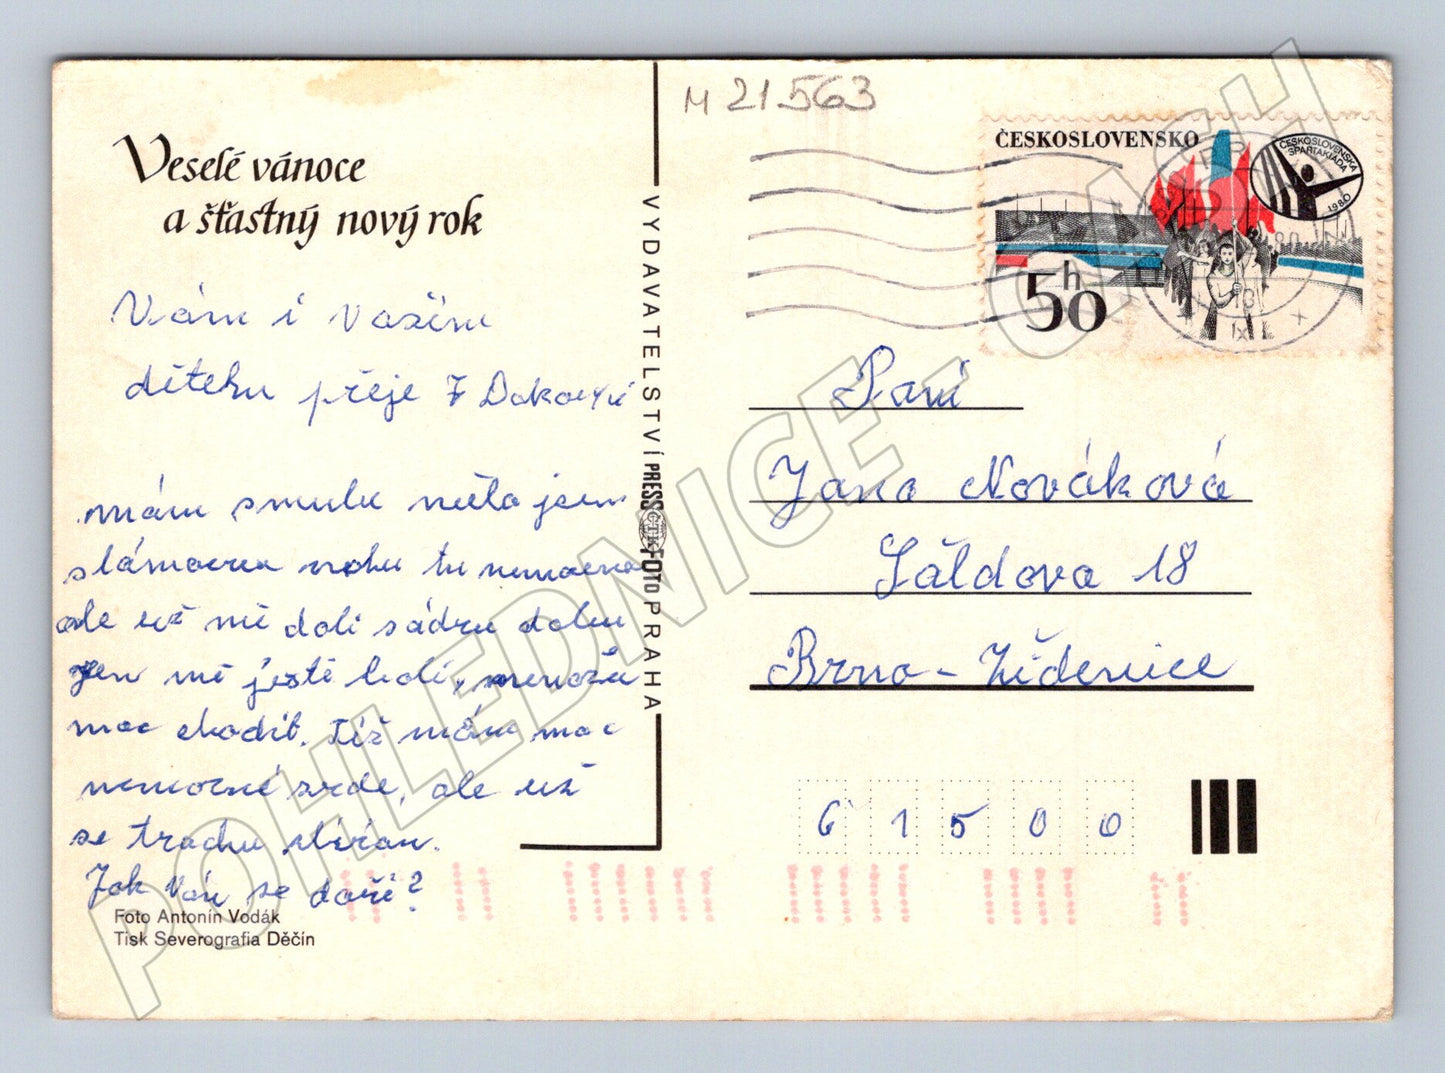 M 21563
Veselé vánoce
a šťastný nový rok
Vám i Vašim
dětem přeje
mám smulu měla jsem
zlámanou nohu tu nemocnou
ale už mě dali sádru dolu
jen mě ještě bolí, nemožu
moc chodit. Též mám moc
nemocné srdce, ale už
se trochu sbírám.
Jak Vám se daří?
Foto Antonín Vodák
Tisk Severografia Děčín
VYDAVATELSTVÍ PRESS ČTK FOTO PRAHA
ČESKOSLOVENSKO
ČESKOSLOVENSKÁ
SPARTAKIÁDA
1980
50h
Paní
Jana Nováková
Šaldova 18
Brno-Židenice
61500
POHLEDNICE - CASH